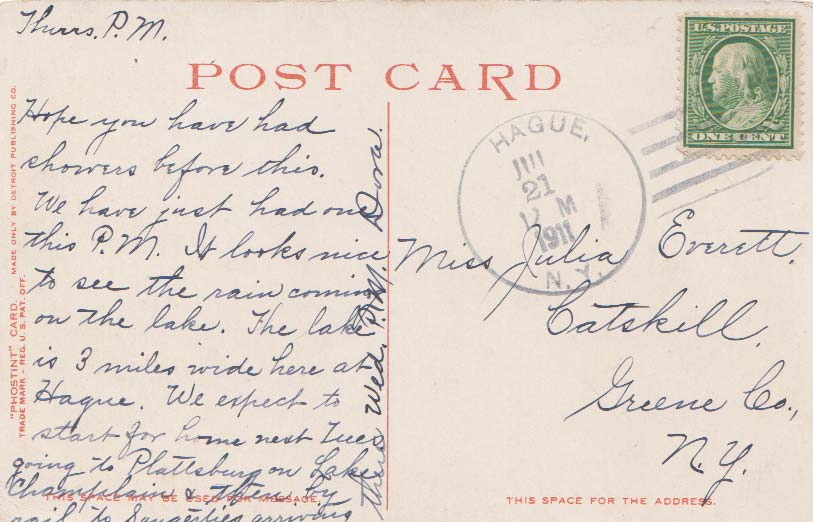 Thurs. P.M.
POST CARD
Hope you have had
showers before this.
We have just had one
this P.M. It looks nice
to see the rain coming
on the lake. The lake
is 3 miles wide here at
Hague. We expect to
start for home next Tues
going to Plattsburg on Lake
Champlain & by
rail to Saugerties arriving
there Wed. P.M. Dora.
"PHOSTINT" CARD. MADE ONLY BY DETROIT PUBLISHING CO.
TRADE MARK - REG. U.S. PAT. OFF.
THIS SPACE MAY BE USED FOR MESSAGE.
U.S. POSTAGE
ONE CENT
HAGUE,
21
M
1911
N.Y.
Miss Julia Everett.
Catskill.
Greene Co.,
N.Y.
THIS SPACE FOR THE ADDRESS.